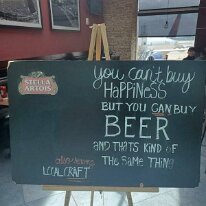 STELLA
ARTOIS
you can't buy
HAPPINESS
BUT YOU CAN BUY
BEER
AND THATS KIND OF
THE SAME THING
LOCAL CRAFT